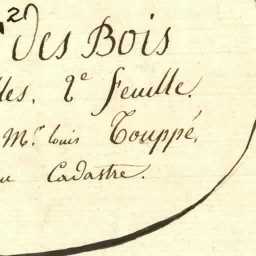 2
des Bois
les, 2e feuille.
Mr. Louis Touppé,
u Cadastre.